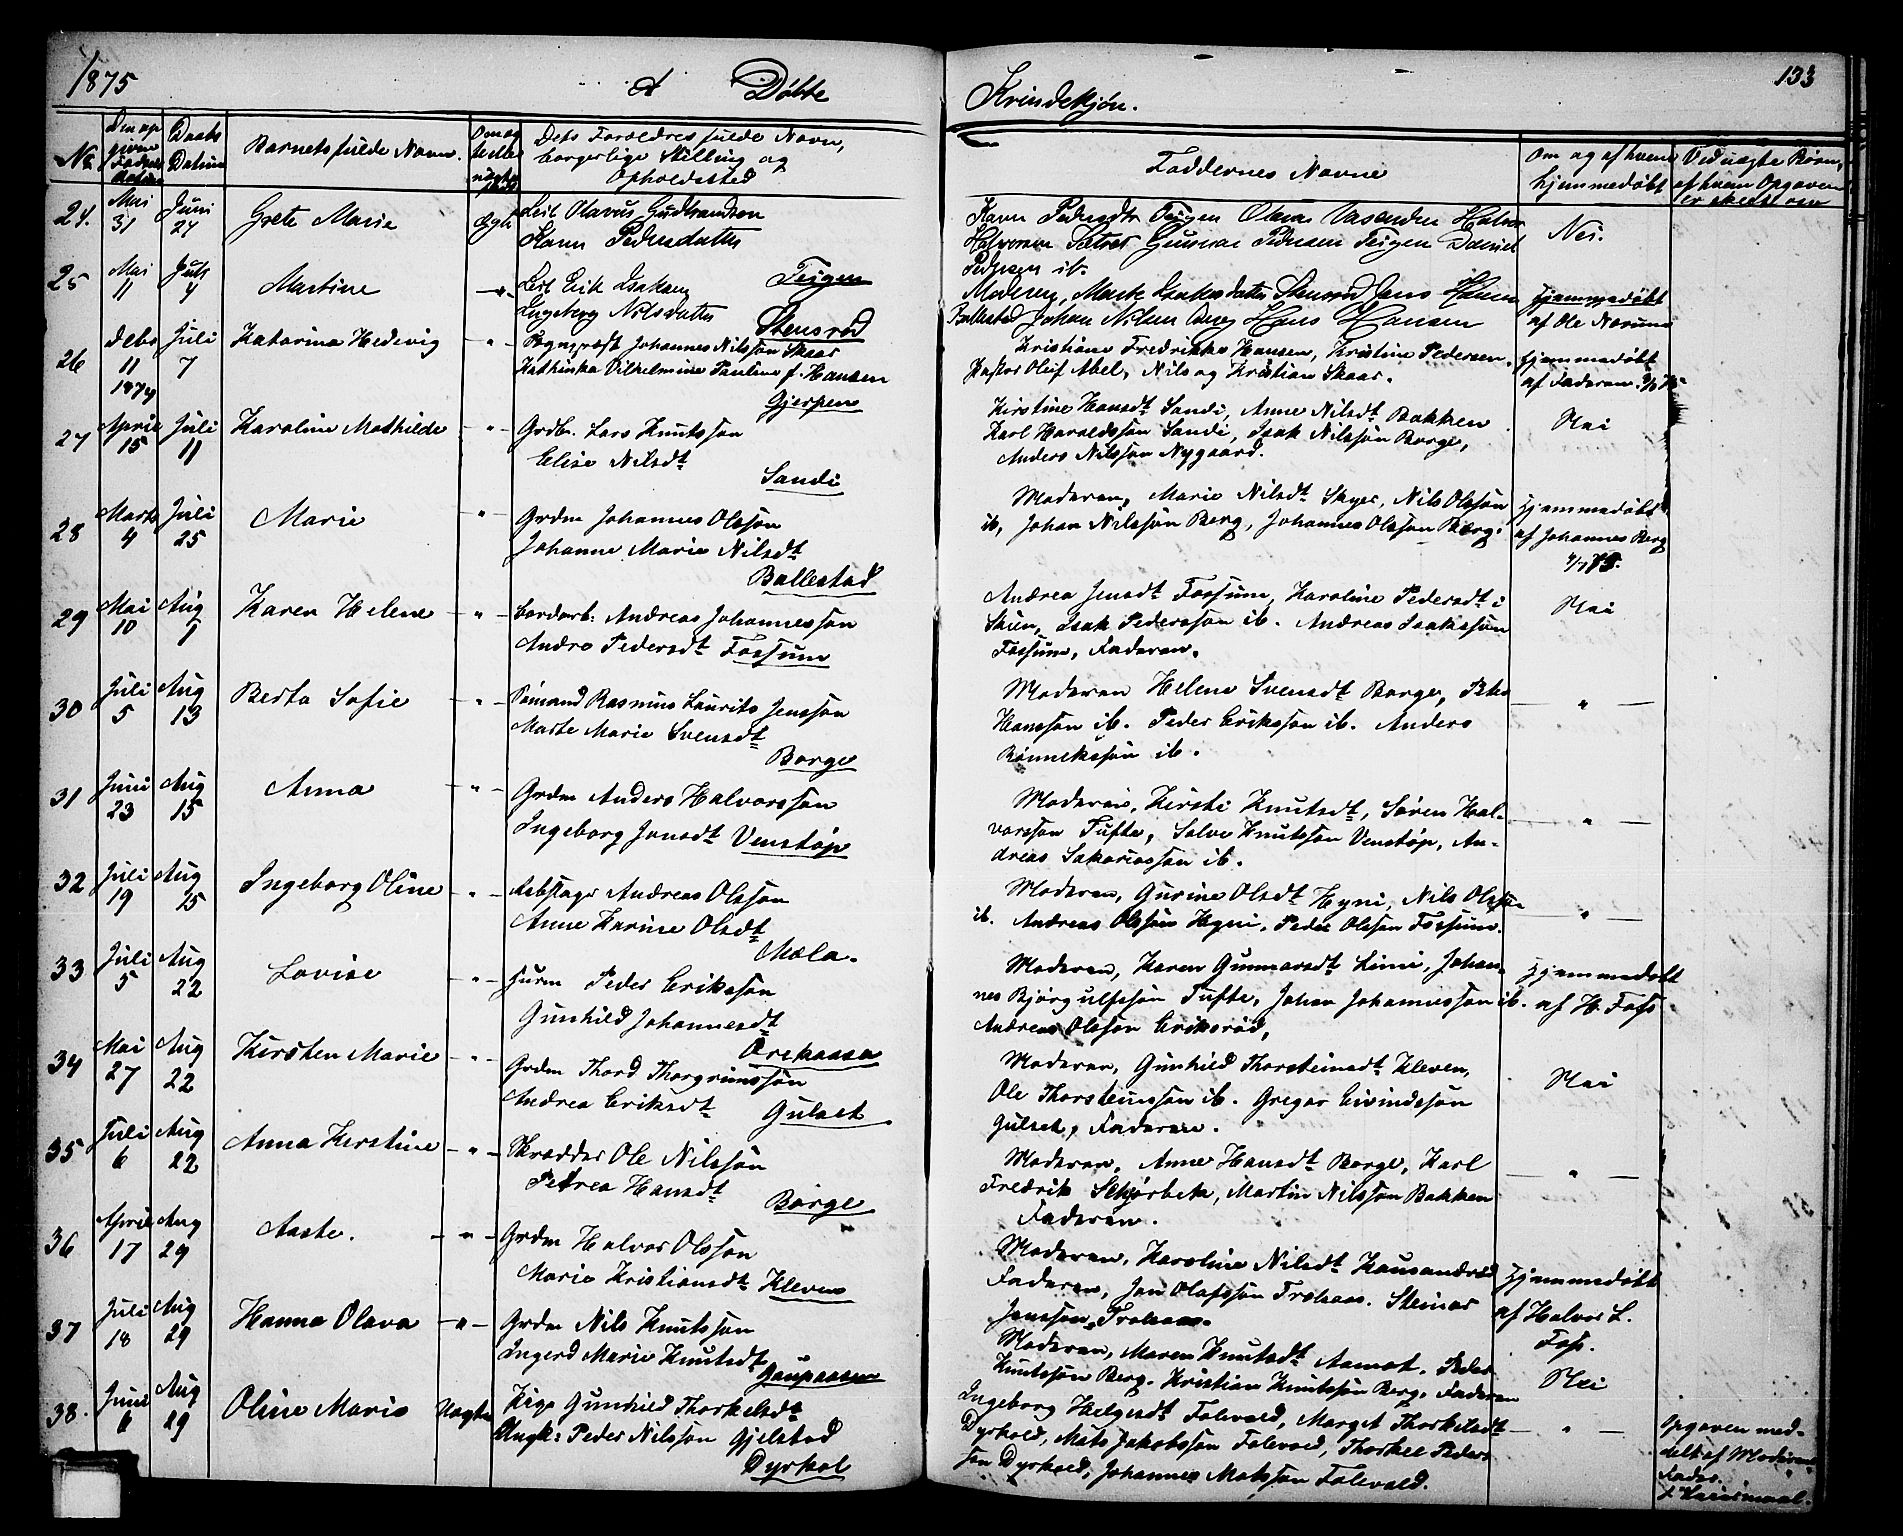 1875 A Døbte Kvindekjøn. 133
No.
Døbs Datum
Barnets fulde Navn.
Dets Forældres fulde Navn,
borgerlige Stilling og
Opholdssted
Faddernes Navne
Om og af hvem
hjemmedøbt
Ved uægte Børn,
af hvem Opgaven
er skedt om
24. Mai 31 Juni 24 Grete Marie Ægte
Leil Olavus Gudbrandsen
Karen Pedersdatter
Teigen
Karen Pedersdtr Teigen
Halvorsen Gunerius Pedersen Teigen Daniel
Pedersen ib.
Nei.
25 Mai 11 Juli 4 Martine - " -
Leil Erik Isaksen
Ingeborg Nilsdatter
Stensrød
Moderen, Marte Isaksdatter Stensrød Jens Hansen
Johan Nilsen Berg Hans Hansen
Hjemmedøbt
af Ole Norum
26 Debr 11 1874 Juli 7 Katarina Hedevig - " -
Sognepræst Johannes Nilssøn Skaar
Kathinka Vilhelmine Pauline f. Hansen
Gjerpen
Kristiane Fredrikke Hansen, Kristine Pedersen
Pastor Oluf Abel, Nils og Kristian Skaar.
Hjemmedøbt
af Faderen
27 April 15 Juli 11 Karoline Mathilde - " -
Grdbr. Lars Knutssøn
Elise Nilsdt
Sandi
Kirstine Hansdt Sandi, Anne Nilsdt Bakken
Karl Haraldssøn Sandi, Isak Nilssøn Borge,
Anders Nilssøn Nygaard.
Nei
28 Marts 4 Juli 25 Marie - " -
Grdm Johannes Olssøn
Johanne Marie Nilsdt
Ballestad
Moderen, Marie Nilsdt Skyer, Nils Olssøn
ib, Johan Nilssøn Berg, Johannes Olssøn Berg.
Hjemmedøbt
af Johannes Berg
29 Mai 10 Aug 1 Karen Helene - " -
Jordarb. Andreas Johannessøn
Andre Pedersdt Fossum
Andrea Jensdt Fossum, Karoline Pedersdt i
Skien, Isak Pederssøn ib. Andreas Isakssøn
Fossum, Faderen.
Nei
30 Juli 5 Aug 13 Berta Sofie - " -
Sømand Rasmus Laurits Jenssøn
Marte Marie Svensdt
Borge
Moderen Helene Svensdt Borge,
Hanssøn ib. Peder Erikssøn ib. Anders
Rønnekssøn ib.
- " -
31 Juni 23 Aug 15 Anna - " -
Grdm Anders Halvorssøn
Ingeborg Jonsdt Venstøp
Moderen, Kirsti Knutsdt, Søren Hal-
vorssøn Tufte, Solve Knutssøn Venstøp, An-
dreas Sakariassøn ib.
- " -
32 Juli 19 Aug 15 Ingeborg Oline - " -
Andreas Olssøn
Anne Karine Olsdt
Mæla.
Moderen, Gurine Olsdt Hyni, Nils Olssøn
ib. Andreas Olssøn Hyni, Peder Olssøn Fossum.
- " -
33 Juli 5 Aug 22 Lovise - " -
Husm Peder Erikssøn
Gunhild Johannesdt
Ørekaasa
Moderen, Karen Gunnarsdt Limi, Johan-
nes Bjørgulfssøn Tufte, Johan Johannessøn ib.
Andreas Olssøn Eriksrød,
Hjemmedøbt
af H. Foss
34 Mai 27 Aug 22 Kirsten Marie - " -
Grdm Thord Thorgrimssøn
Andrea Eriksdt Gulset
Moderen, Gunhild Thorsteinsdt Kleven,
Ole Thorsteinssøn ib. Gregar Eivindssøn
Gulset, Faderen.
Nei
35 Juli 6 Aug 22 Anna Kirstine - " -
Skrædder Ole Nilssøn
Petrea Hansdt
Borge
Moderen, Anne Hansdt Borge, Karl
Fredrik Skjørbek, Martin Nilssøn Bakken
Faderen.
- " -
36 April 17 Aug 29 Aaste. - " -
Grdm Halvor Olssøn
Marie Kristiansdt Kleven
Moderen, Karoline Nilsdt
Faderen, Jon Olafssøn Steinar
Jenssøn
Hjemmedøbt
af Halvor L.
Foss.
37 Juli 18 Aug 29 Hanna Olava - " -
Grdm Nils Knutssøn
Ingerd Marie Knutsdt
Gaupaasen
Moderen, Maren Knutsdt Aamot. Peder
Knutssøn Berg. Kristian Knutssøn Berg. Faderen
Nei
38. Juni 6 Aug 29 Oline Marie Uægte
Pige Gunhild Thorkelsdt
Ungk: Peder Nilssøn Gjelstad
Dyrkol
Ingeborg Helgesdt Folevold, Marget Thorkelsdt
Dyrkold, Mats Jakobssøn Folevold, Thorkel Peders-
søn Dyrkold, Johannes Matssøn Folevold.
- " -
Opgaven med-
delt af Moderens
Fader.